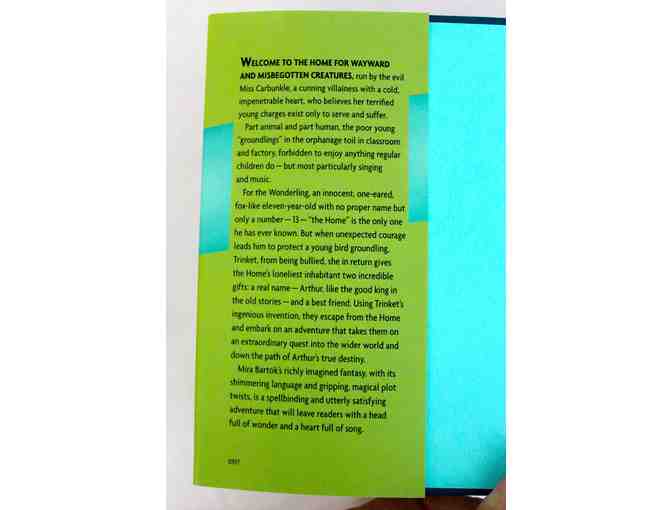 WELCOME TO THE HOME FOR WAYWARD
AND MISBEGOTTEN CREATURES, run by the evil
Miss Carbunkle, a cunning villainess with a cold,
impenetrable heart, who believes her terrified
young charges exist only to serve and suffer.
Part animal and part human, the poor young
“groundlings” in the orphanage toil in classroom
and factory, forbidden to enjoy anything regular
children do — but most particularly singing
and music.
For the Wonderling, an innocent, one-eared,
fox-like eleven-year-old with no proper name but
only a number — 13 — “the Home” is the only one
he has ever known. But when unexpected courage
leads him to protect a young bird groundling,
Trinket, from being bullied, she in return gives
the Home’s loneliest inhabitant two incredible
gifts: a real name — Arthur, like the good king in
the old stories — and a best friend. Using Trinket’s
ingenious invention, they escape from the Home
and embark on an adventure that takes them on
an extraordinary quest into the wider world and
down the path of Arthur’s true destiny.
Mira Bartók’s richly imagined fantasy, with its
shimmering language and gripping, magical plot
twists, is a spellbinding and utterly satisfying
adventure that will leave readers with a head
full of wonder and a heart full of song.
0917